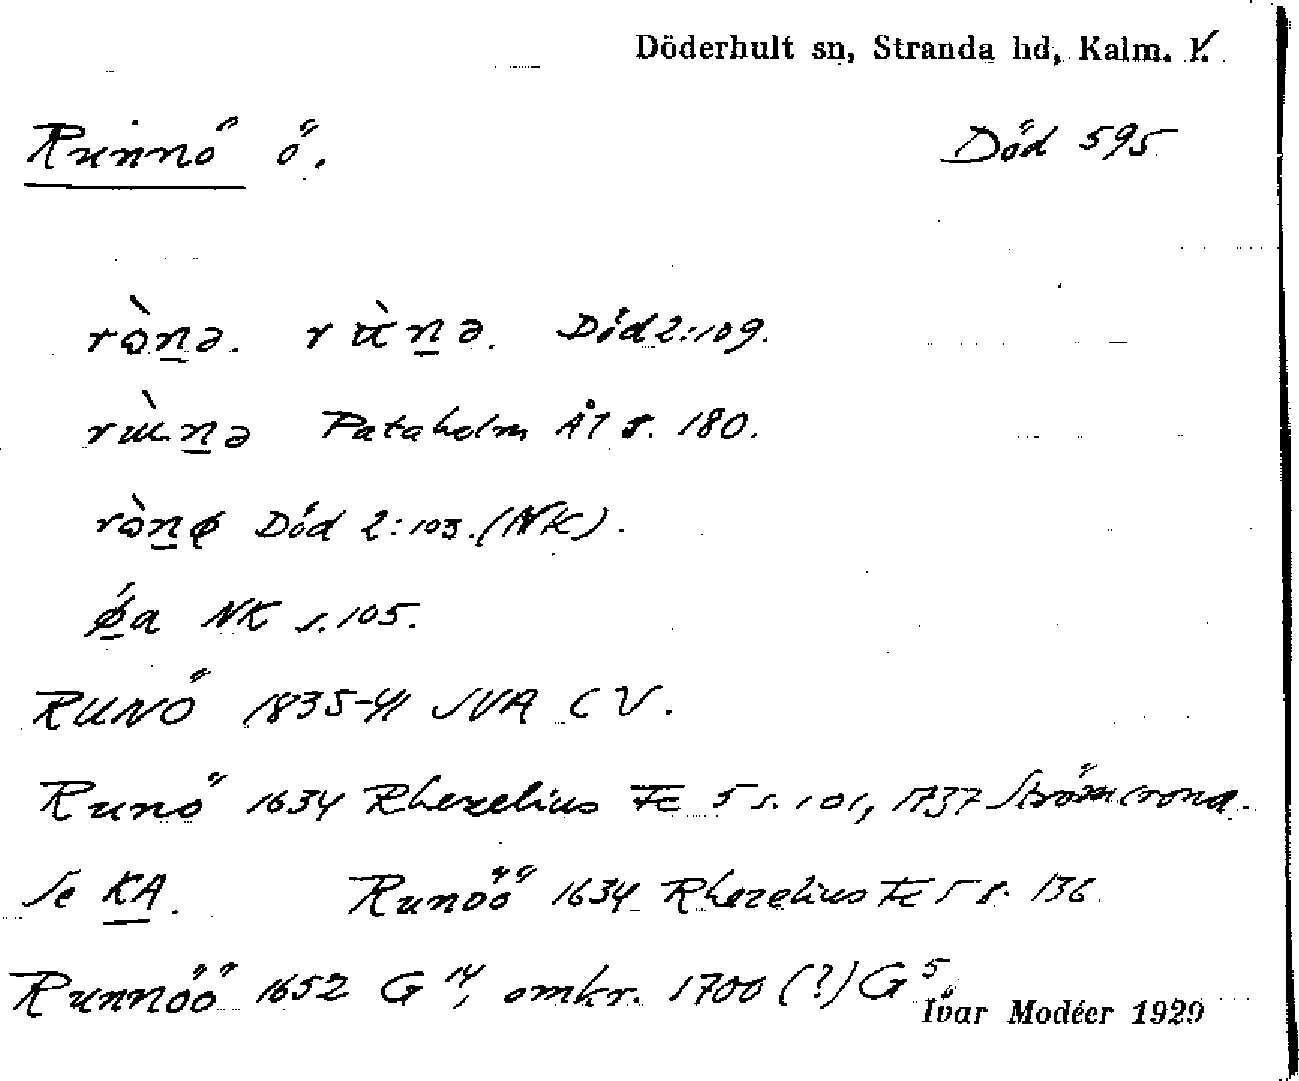 Döderhult sn, Stranda hd, Kalm. l.
Runnö ö. Död 595
ròn̲ə. rùn̲ə. Död 2:109.
rùn̲ə Pataholm ÅT s. 180.
ròn̲ø Död 2:103. (NK).
ǿ̲a NK s. 105.
RUNÖ 1835-41 JVA CV.
Runö 1634 Rhezelius Fc 5 s. 101, 1737 Strömcrona.
Se KA. Runöö 1634 Rhezelius Fc 5 s. 136.
Runnöö 1652 G 14, omkr. 1700 (?) G 5.
Ivar Modéer 1929